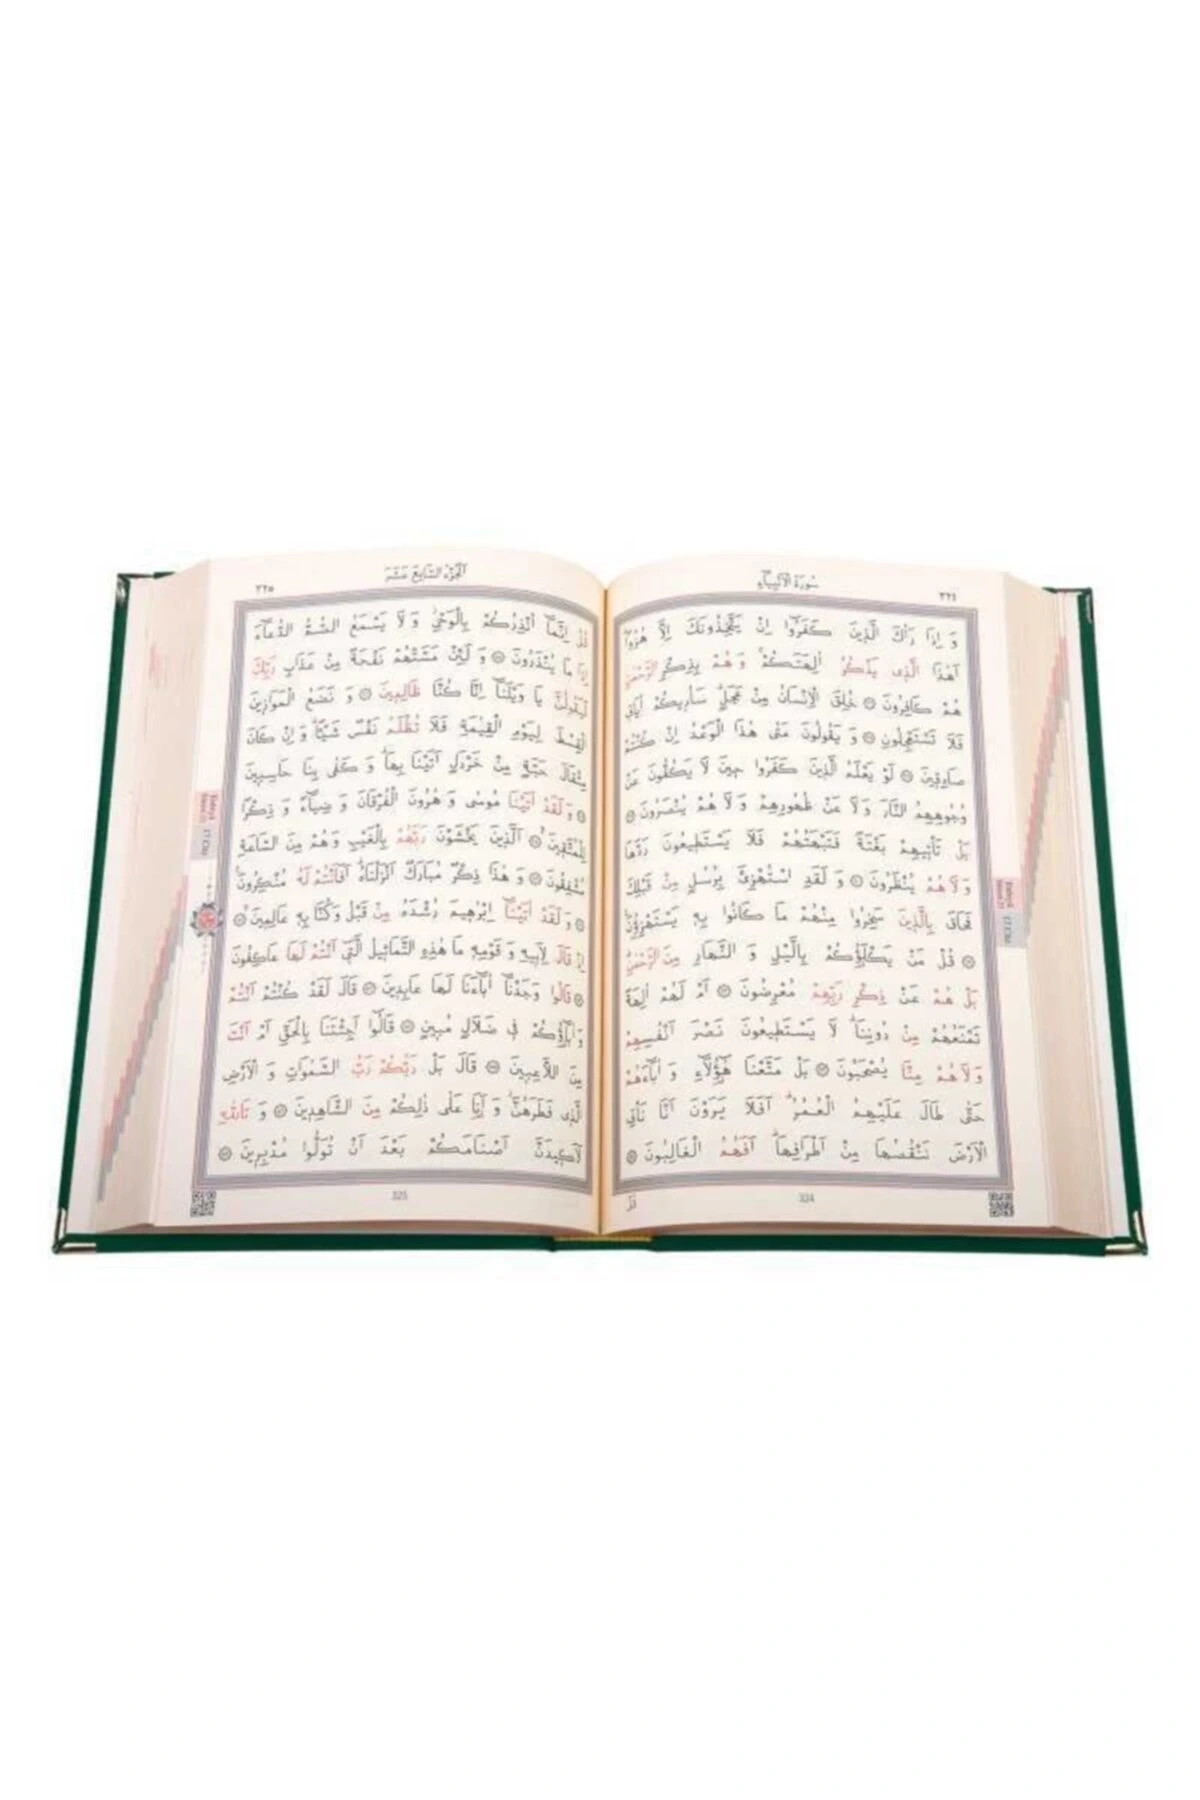 سُورَةُ الْاَنْبِيَاءِ
٣٢٤
وَ اِذَا رَاٰكَ الَّذٖينَ كَفَرُٓوا اِنْ يَتَّخِذُونَكَ اِلَّا هُزُوًاؕ
اَهٰذَا الَّذٖى يَذْكُرُ اٰلِهَتَكُمْۚ وَ هُمْ بِذِكْرِ الرَّحْمٰنِ
هُمْ كَافِرُونَ خُلِقَ الْاِنْسَانُ مِنْ عَجَلٍؕ سَاُرٖيكُمْ اٰيَاتٖى
فَلَا تَسْتَعْجِلُونِ وَ يَقُولُونَ مَتٰى هٰذَا الْوَعْدُ اِنْ كُنْتُمْ
صَادِقٖينَ لَوْ يَعْلَمُ الَّذٖينَ كَفَرُوا حٖينَ لَا يَكُفُّونَ عَنْ
وُجُوهِهِمُ النَّارَ وَلَا عَنْ ظُهُورِهِمْ وَ لَا هُمْ يُنْصَرُونَ
بَلْ تَاْتٖيهِمْ بَغْتَةً فَتَبْهَتُهُمْ فَلَا يَسْتَطٖيعُونَ رَدَّهَا
وَلَا هُمْ يُنْظَرُونَ وَ لَقَدِ اسْتُهْزِئَ بِرُسُلٍ مِنْ قَبْلِكَ
فَحَاقَ بِالَّذٖينَ سَخِرُوا مِنْهُمْ مَا كَانُوا بِهٖ يَسْتَهْزِؤُنَ
قُلْ مَنْ يَكْلَؤُكُمْ بِالَّيْلِ وَ النَّهَارِ مِنَ الرَّحْمٰنِؕ
بَلْ هُمْ عَنْ ذِكْرِ رَبِّهِمْ مُعْرِضُونَ اَمْ لَهُمْ اٰلِهَةٌ
تَمْنَعُهُمْ مِنْ دُونِنَاؕ لَا يَسْتَطٖيعُونَ نَصْرَ اَنْفُسِهِمْ
وَلَا هُمْ مِنَّا يُصْحَبُونَ بَلْ مَتَّعْنَا هٰٓؤُلَٓاءِ وَ اٰبَٓاءَهُمْ
حَتّٰى طَالَ عَلَيْهِمُ الْعُمُرُؕ اَفَلَا يَرَوْنَ اَنَّا نَاْتِى
الْاَرْضَ نَنْقُصُهَا مِنْ اَطْرَافِهَاؕ اَفَهُمُ الْغَالِبُونَ
324
قُلْ
اَلْجُزْءُ السَّابِعَ عَشَرَ
٣٢٥
قُلْ اِنَّمَٓا اُنْذِرُكُمْ بِالْوَحْىِؗ وَ لَا يَسْمَعُ الصُّمُّ الدُّعَٓاءَ
اِذَا مَا يُنْذَرُونَ وَ لَئِنْ مَسَّتْهُمْ نَفْحَةٌ مِنْ عَذَابِ رَبِّكَ
لَيَقُولُنَّ يَا وَيْلَنَٓا اِنَّا كُنَّا ظَالِمٖينَ وَ نَضَعُ الْمَوَازٖينَ
الْقِسْطَ لِيَوْمِ الْقِيٰمَةِ فَلَا تُظْلَمُ نَفْسٌ شَيْـًٔاؕ وَ اِنْ كَانَ
مِثْقَالَ حَبَّةٍ مِنْ خَرْدَلٍ اَتَيْنَا بِهَاؕ وَ كَفٰى بِنَا حَاسِبٖينَ
وَ لَقَدْ اٰتَيْنَا مُوسٰى وَ هٰرُونَ الْفُرْقَانَ وَ ضِيَٓاءً وَ ذِكْرًا
لِلْمُتَّقٖينَۙ اَلَّذٖينَ يَخْشَوْنَ رَبَّهُمْ بِالْغَيْبِ وَ هُمْ مِنَ السَّاعَةِ
مُشْفِقُونَ وَ هٰذَا ذِكْرٌ مُبَارَكٌ اَنْزَلْنَاهُؕ اَفَاَنْتُمْ لَهُ مُنْكِرُونَ
وَ لَقَدْ اٰتَيْنَٓا اِبْرٰهٖيمَ رُشْدَهُ مِنْ قَبْلُ وَكُنَّا بِهٖ عَالِمٖينَۚ
اِذْ قَالَ لِاَبٖيهِ وَ قَوْمِهٖ مَا هٰذِهِ التَّمَاثٖيلُ الَّتٖٓى اَنْتُمْ لَهَا عَاكِفُونَ
قَالُوا وَجَدْنَٓا اٰبَٓاءَنَا لَهَا عَابِدٖينَ قَالَ لَقَدْ كُنْتُمْ اَنْتُمْ
وَ اٰبَٓاؤُكُمْ فٖى ضَلَالٍ مُبٖينٍ قَالُٓوا اَجِئْتَنَا بِالْحَقِّ اَمْ اَنْتَ
مِنَ اللَّاعِبٖينَ قَالَ بَلْ رَبُّكُمْ رَبُّ السَّمٰوَاتِ وَ الْاَرْضِ
الَّذٖى فَطَرَهُنَّؗ وَ اَنَا عَلٰى ذٰلِكُمْ مِنَ الشَّاهِدٖينَ وَ تَاللّٰهِ
لَاَكٖيدَنَّ اَصْنَامَكُمْ بَعْدَ اَنْ تُوَلُّوا مُدْبِرٖينَ
325